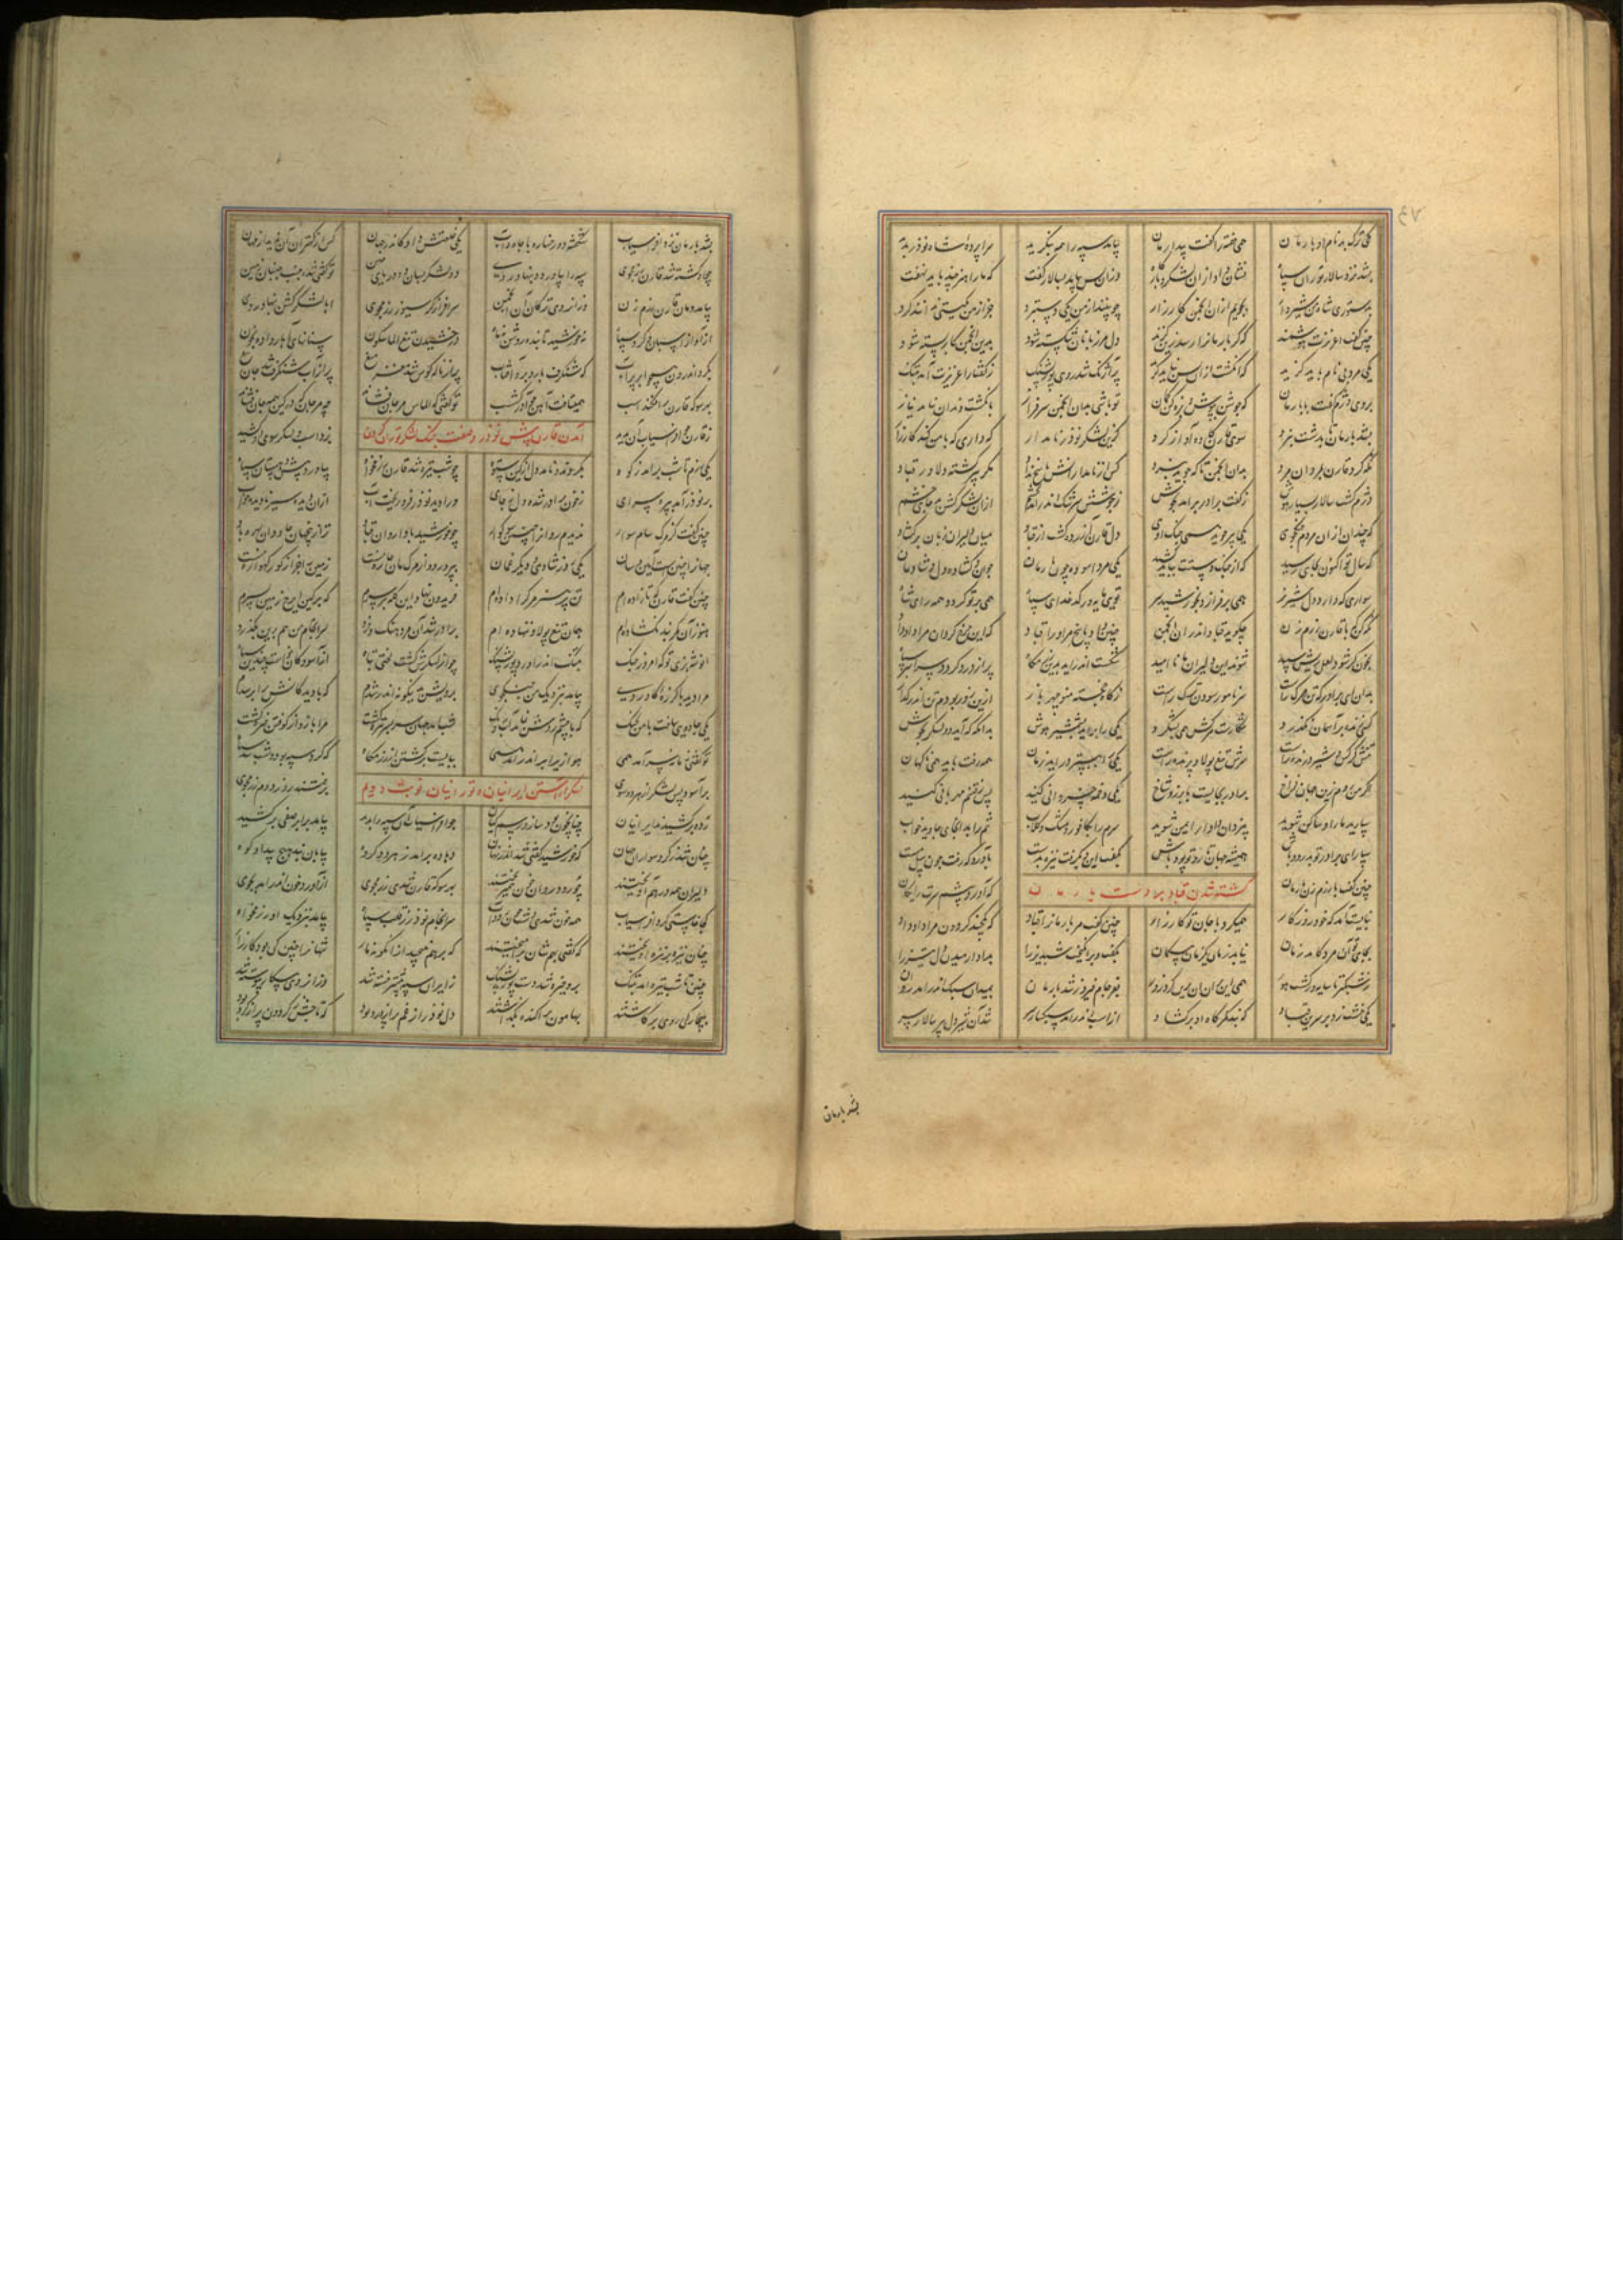 یکی ترک بد نام او بارمان همی خفته را گفت بیدار مان بیامد سپه را همه بنگرید سراپرده شاه نوذر بدید
بشد نزد سالار توران سپاه نشان داد ازان لشکر و بارگاه وزان پس بیامد بسالار گفت که ما را هنر چند باید نهفت
بدستوری شاه من شیروار بجویم ازان انجمن کارزار چو بینند از من یکی دستبرد جز از من بگیتی ندانند گرد
چنین گفت اغریرث هوشمند که گر بارمانرا رسد زین گزند دل مرزبانان شکسته شود بدین انجمن کار بسته شود
یکی مرد بی نام باید گزید که انگشت ازان پس نباید گزید پرآژنگ شد روی پور پشنگ ز گفتار اغریرث آمدش ننگ
بروی دژم گفت با بارمان که جوشن بپوش و بزه کن کمان تو باشی بدان انجمن سرفراز بانگشت دندان نیاید نیاز
بشد بارمان تا بدشت نبرد سوی قارن کاوه آواز کرد کزین لشکر نوذر نامدار که داری که با من کند کارزار
نگه کرد قارن بمردان مرد بدان انجمن تا که جوید نبرد کس از نامدارانش پاسخ نداد مگر پیر گشته دلاور قباد
دژم گشت سالار بسیار هوش ز گفت برادر برآمد بجوش سرشک اندر آمد بچشم ازان لشکر گشن بد جای خشم
که چندان ازان مردم جنگجوی یکی پیر جوید همی جنگ اوی دل قارن آزرده گشت از قباد میان دلیران زبان برگشاد
که سال تو اکنون بجایی رسید که از جنگ دستت بباید کشید یکی مرد آسوده چون بارمان جوان و گشاده دل و شادمان
سواری که دارد دل شیر نر همی برفرازد بخورشید سر تویی مایه ور کدخدای سپاه همی بر تو گردد همه رای شاه
با قارن رزم زن چگوید قباد اندران انجمن چنین داد پاسخ مراورا قباد که این چرخ گردان مرا داد داد
بخون گر شود لعل ریش سپید شوند این دلیران ما ناامید شکست اندر آید بدین رزمگاه پر از درد گردد سراسر سپاه
بدان ای برادر که تن مرگ راست سر نامور سودن ترگ راست ز گاه خجسته منوچهر باز ازین روز بودم تن اندر گداز
کسی زنده بر آسمان نگذرد شکارست مرگش همی بشکرد یکی را برآید بشمشیر هوش بدانگه که آید دو لشکر بجوش
تنش کرگس و شیر درنده راست سرش تیغ پولاد برنده راست یکی را ببستر برآید زمان همه رفت باید همی ناگهان
اگر من روم زین جهان فراخ برادر بجایست با برز و شاخ یکی دخمه خسروانی کنید پس از رفتنم مهربانی کنید
سپارید ما را و ساکن شوید بیزدان دادار ایمن شوید سرم را بکافور و مشک و گلاب تنم را بدانجای جاوید خواب
سپاری برادر تو بدرود باش همیشه جهان تار و تو پود باش بگفت این و بگرفت نیزه بدست بآورد گه رفت چون پیل مست
چنین گفت با رزم زن بارمان که آورد پیشم سرت رایگان
کشته شدن قباد بر دست بارمان
ببایست آمد که خود روزگار همی کرد با جان تو کارزار چنین گفت مر بارمانرا قباد که یکچند گردون مرا داد داد
بجای توان مرد کاید زمان نیاید زمان یکزمان بیگمان بگفت و برانگیخت شبدیز را بداد آرمیدن دل تیز را
ز شبگیر تا سایه گسترد هور همی این ازان آن ازین کرد زور بفرجام پیروز شد بارمان بمیدان اندر آمد
یکی خشت زد بر سرین قباد که بند کمرگاه او برگشاد از اسپ اندر آمد نگونسار سر شد آن شیردل پیر سالار سر
بشد بارمان
بشد بارمان نزد افراسیاب شکفته دو رخساره با جاه و آب یکی خلعتش داد کاندر جهان کس از کهتران آن ندید از مهان
چو او کشته شد قارن رزمجوی سپه را بیاورد و بنهاد روی دو لشکر بسان دو دریای چین تو گفتی که شد جنب جنبان زمین
بیامد دمان قارن رزم زن وزان روی ترکان آن انجمن سرافراز گرسیوز رزمجوی ابا لشکر گشن بنهاد روی
از آواز اسپان و گرد سپاه نه خورشید تابنده روشن نه ماه درخشیدن تیغ الماسگون سنانهای آهار داده بخون
بگرد اندرون همچو ابر پرآب که شنگرف بارد برو آفتاب پر از ناله کوس شد مغز میغ پر از آب شنگرف شد جان تیغ
بهر سو که قارن برافکند اسب همی تافت آهن چو آذرگشسب تو گفتی که الماس مرجان فشاند چه مرجان که در کین همی جان فشاند
ز قارن چو افراسیاب آن بدید بزد اسب و لشکر سوی او کشید
آمدن قارن پیش نوذر و صفت جنگ لشکر توران کردن
یکی رزم تا شب برآمد ز کوه بکردند و نامد دل از کین ستوه چو شب تیره شد قارن رزمخواه بیاورد پیش دهستان سپاه
بر نوذر آمد بپرده سرای ز خون برادر شده دل ز جای ورا دید نوذر فروریخت آب ازان دیده سیر نادیده خواب
چنین گفت کز مرگ سام سوار ندیدم روانرا چنین سوگوار چو خورشید بادا روان قباد ترا زین جهان جاودان بهره باد
جهانرا چنین است آیین و سان یکی روز شادی و دیگر غمان بپرورد و از مرگ مان چاره نیست زمین را جز از گور گهواره نیست
چنین گفت قارن که تا زاده ام تن پر هنر مرگ را داده ام فریدون نهاد این کله بر سرم که بر کین ایرج زمین بسپرم
هنوز آن کمربند نگشاده ام همان تیغ پولاد ننهاده ام برادر شد آن مرد هنگ و خرد سرانجام من هم برین بگذرد
انوشه بزی تو که امروز جنگ بتنگ اندر آورد پور پشنگ چو از لشکرش گشت لختی تباه از آسودگان خواست چندین سپاه
مرا دید با گرزه گاوروی بیامد بنزدیک من جنگجوی برویش بدینگونه اندر شدم که با دیدگانش برابر شدم
یکی جادویی ساخت با من بجنگ که با چشم روشن نماند آب و رنگ شب آمد جهان سربسر تیره گشت مرا بازو از کوفتن خیره گشت
تو گفتی زمانه سرآمد همی هوا زیر ابر اندر آمد همی ببایست برگشتن از رزمگاه که گرد سپه بود و شب شد سیاه
برآسود پس لشکر از هر دو سوی برفتند روز دوم رزمجوی
لشکر آراستن ایرانیان و تورانیان نوبت دویم
رده برکشیدند ایرانیان چنانچون بود ساز و رسم کیان چو افراسیاب آن سپه را بدید بیامد برابر صفی برکشید
چنان شد ز گرد سواران جهان که خورشید گفتی شد اندر نهان دهاده برآمد ز هر دو گروه بیابان نبد هیچ پیدا ز کوه
دلیران همه در هم آویختند چو رود روان خون همی ریختند بهر سو که قارن شدی رزمجوی از آورد خون اندر آمد بجوی
کجا خاستی گرد افراسیاب همه خون شدی دشت چون رود آب سرانجام نوذر ز قلب سپاه بیامد بنزدیک او رزمخواه
چنان نیزه بر نیزه آویختند که گفتی بهم شان برآمیختند که بر هم نپیچد ازانگونه مار شهانرا چنین کی بود کارزار
چنین تا شب تیره آمد بتنگ برو خیره شد دست پور پشنگ از ایران سپه بیشتر خسته شد وزان روی پیکار پیوسته شد
بیچارگی روی برگاشتند بهامون پراکنده بگذاشتند دل نوذر از غم پر از درد بود که تاجش ز گردون پر از گرد بود